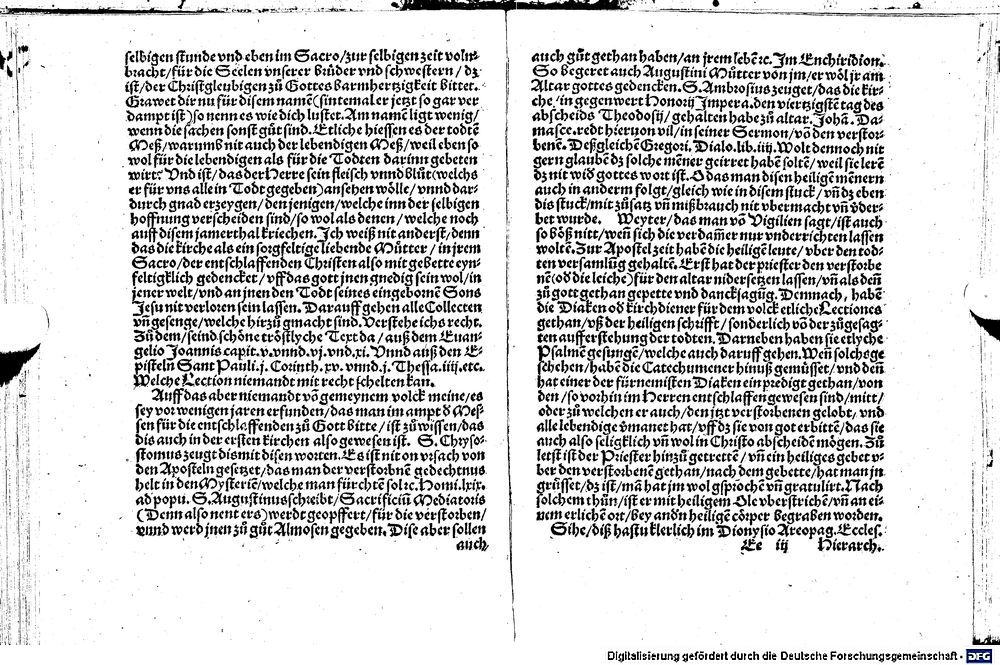 selbigen stunde vnd eben im Sacro/zur selbigen zeit voln-
bracht/für die Seelen vnserer brüder vnd schwestern/dz
ist/der Christgleubigen zů Gottes barmhertzigkeit bittet.
Grawet dir nu für disem namẽ(sintemal er jetzt so gar ver
dampt ist) so nenn es wie dich lustet. Am namẽ ligt wenig/
wenn die sachen sonst gůt sind. Etliche hiessen es der todtẽ
Meß/warumb nit auch der lebendigen Meß/weil eben so
wol für die lebendigen als für die Todten darinn gebeten
wirt? Vnd ist/das der Herre sein fleisch vnnd blůt(welchs
er für vns alle in Todt gegeben)ansehen wölle/vnnd dar-
durch gnad erzeygen/den jenigen/welche inn der selbigen
hoffnung verscheiden sind/so wol als denen/welche noch
auff disem jamerthal kriechen. Ich weiß nit anderst/denn
das die kirche als ein sorgfeltige liebende Mütter/in jrem
Sacro/der entschlaffenden Christen also mit gebette eyn-
feltigklich gedencket/vff das gott jnen gnedig sein wol/in
jener welt/vnd an jnen den Todt seines eingebornẽ Sons
Jesu nit verloren sein lassen. Darauff gehen alle Collecten
vñ gesenge/welche hirzů gmacht sind. Verstehe ichs recht.
Zů dem/seind schöne tröstlyche Text da/auß dem Euan-
gelio Joannis capit.v.vnnd.vj.vnd.xi. Vnnd auß den E-
pisteln Sant Pauli.j.Corinth.xv.vnnd.j.Thessa.iiij.etc.
Welche Lection niemandt mit recht schelten kan.
Auff das aber niemandt võ gemeynem volck meine/es
sey vor wenigen jaren erfunden/das man im ampt d Mes-
sen für die entschlaffenden zů Gott bitte/ist zů wissen/das
dis auch in der ersten kirchen also gewesen ist. S.Chryso-
stomus zeugt dis mit disen worten. Es ist nit on vrsach von
den Aposteln gesetzet/das man der verstorbnẽ gedechtnus
helt in den Mysteriẽ/welche man fürchtẽ sol ꝛc. Homi.lxix.
ad popu. S.Augustinus schreibt/Sacrificiũ Mediatoris
(Denn also nent ers) werdt geopffert/für die verstorben/
vnnd werd jnen zů gůt Almosen gegeben. Dise aber sollen
auch
auch gůt gethan haben/an jrem lebẽ ꝛc. Im Enchiridion.
So begeret auch Augustini Mütter von jm/er wöl jr am
Altar gottes gedencken. S.Ambrosius zeuget/das die kir-
che/in gegenwert Honorij Impera.den viertzigstẽ tag des
abscheids Theodosij/gehalten habe zů altar. Johã. Da-
masce.redt hieruon vil/in seiner Sermon/võ den verstor-
benẽ. Deßgleichẽ Gregori. Dialo.lib.iiij. Wolt dennoch nit
gern glaubẽ dz solche mẽner geirret habẽ soltẽ/weil sie lerẽ
dz nit wid gottes wort ist. O das man disen heiligẽ mẽnern
auch in anderm folgt/gleich wie in disem stuck/vñ dz eben
dis stuck/mit zůsatz vñ mißbrauch nit vbermacht vñ v̈der-
bet wurde. Weyter/das man võ Vigilien sagt/ist auch
so böß nitt/weñ sich die verdam̃er nur vnderrichten lassen
woltẽ. Zur Apostel zeit habẽ die heiligẽ leute/vber den tod-
ten versamlũg gehaltẽ. Erst hat der priester den verstorbe
nẽ(od die leiche)für den altar nidersetzen lassen/vñ als deñ
zů gott gethan gepette vnd dancksagũg. Dennach, habẽ
die Diakẽ od kirchdiener für dem volck etliche Lectiones
gethan/vß der heiligen schrifft/sonderlich võ der zůgesag-
ten aufferstehung der todten. Darneben haben sie etlyche
Psalmẽ gesungẽ/welche auch daruff gehen. Weñ solchs ge
schehen/habẽ die Catechumener hinuß gemüsset/vnd deñ
hat einer der fürnemisten Diakẽ ein predigt gethan/von
den/so vorhin im Herren entschlaffen gewesen sind/mitt/
oder zů welchen er auch/den jtzt verstorbenen gelobt/vnd
alle lebendige v̈manet hat/vff dz sie von got erbittẽ/das sie
auch also seligklich vñ wol in Christo abscheidẽ mögen. Zů
letst ist der Priester hinzů getrettẽ/vñ ein heiliges gebet v-
ber den verstorbenẽ gethan/nach dem gebette/hat man jn
grüsset/dz ist/mã hat jm wol gsprochẽ vñ gratulirt. Nach
solchem thůn/ist er mit heiligem Ole vberstrichẽ/vñ an ei-
nem erlichẽ ort/bey andn heiligẽ cörper begraben worden.
Sihe/diß hastu klerlich im Dionysio Areopag.Eccles.
Ee iij Hierarch.
Digitalisierung gefördert durch die Deutsche Forschungsgemeinschaft - DFG